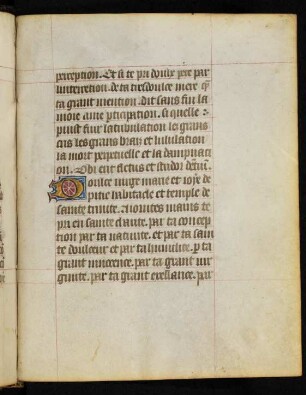 perception. Et si te pri doulx pere par
lintercetion. de ta tresdoulce mere q̄
ta grant mention. dit sans fin la
moie ame pticipation. si quelle
puist fuir la tribulation les grans
cris les grans brais et lululation
la mort perpetuelle et la dampnaci
on. 
Doulce virge marie et ioye de
pitie habitacle et temple de
sainte trinite. Iointes mains te
pri en sainte charite. par ta concep
tion par ta natiuite. et par ta sain
te doulceur et par ta humilite. p ta
grant innocence. par ta grant vir
ginite. par ta grant exellance. par